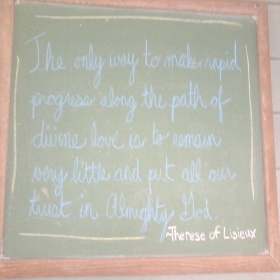 The only way to make rapid
progress along the path of
divine love is to remain
very little and put all our
trust in Almighty God.
~Therese of Lisieux